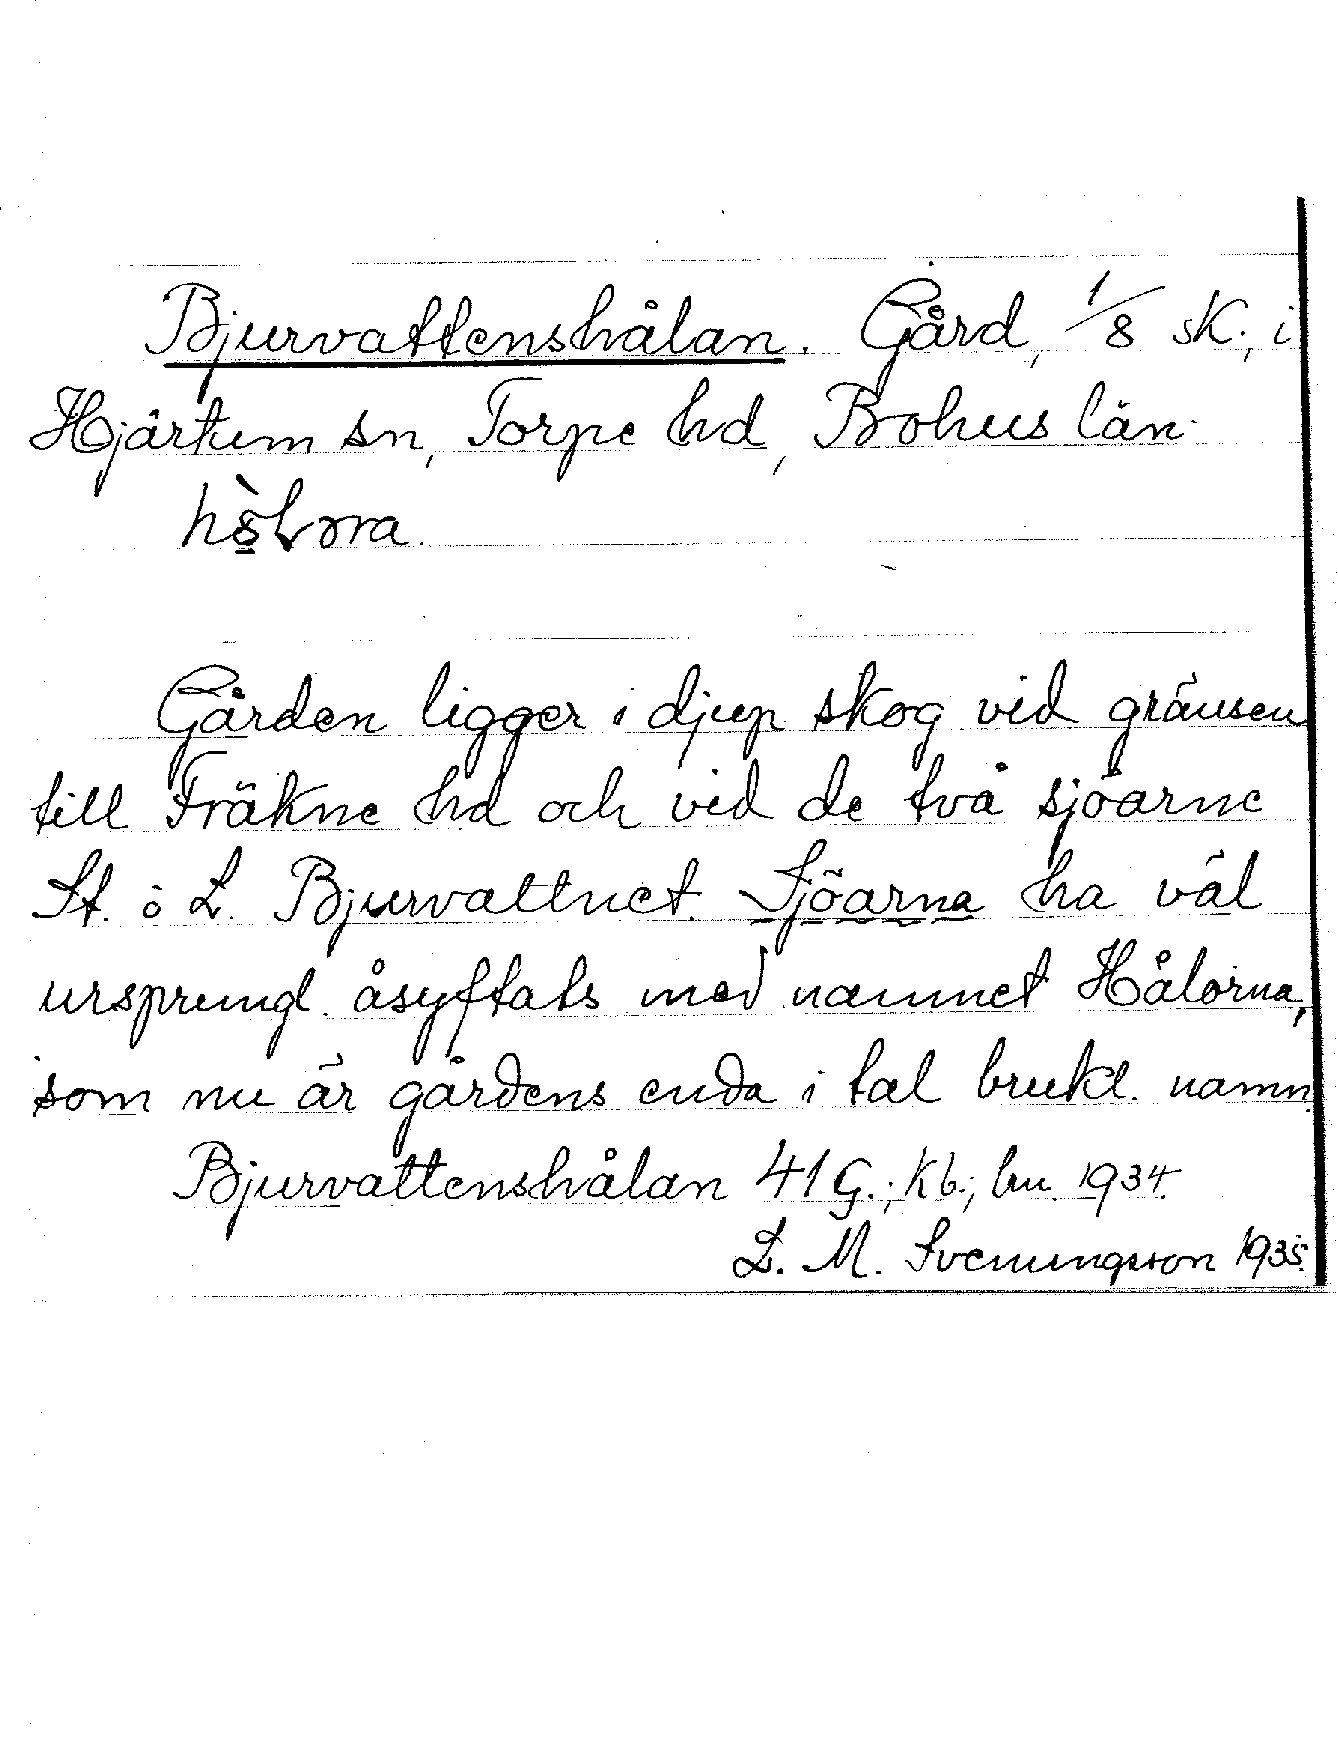 Bjurvattenshålan. Gård, 1/8 sk., i
Hjärtum sn, Torpe hd, Bohus län.
Gården ligger i djup skog vid gränsen
till Fräkne hd och vid de två sjöarne
St. o L. Bjurvattnet. Sjöarna ha väl
ursprungl. åsyftats med namnet Hålorna,
som nu är gårdens enda i tal brukl. namn.
Bjurvattenshålan 41 G.; Kb.; bu. 1934.
L. M. Svenungsson 1935.